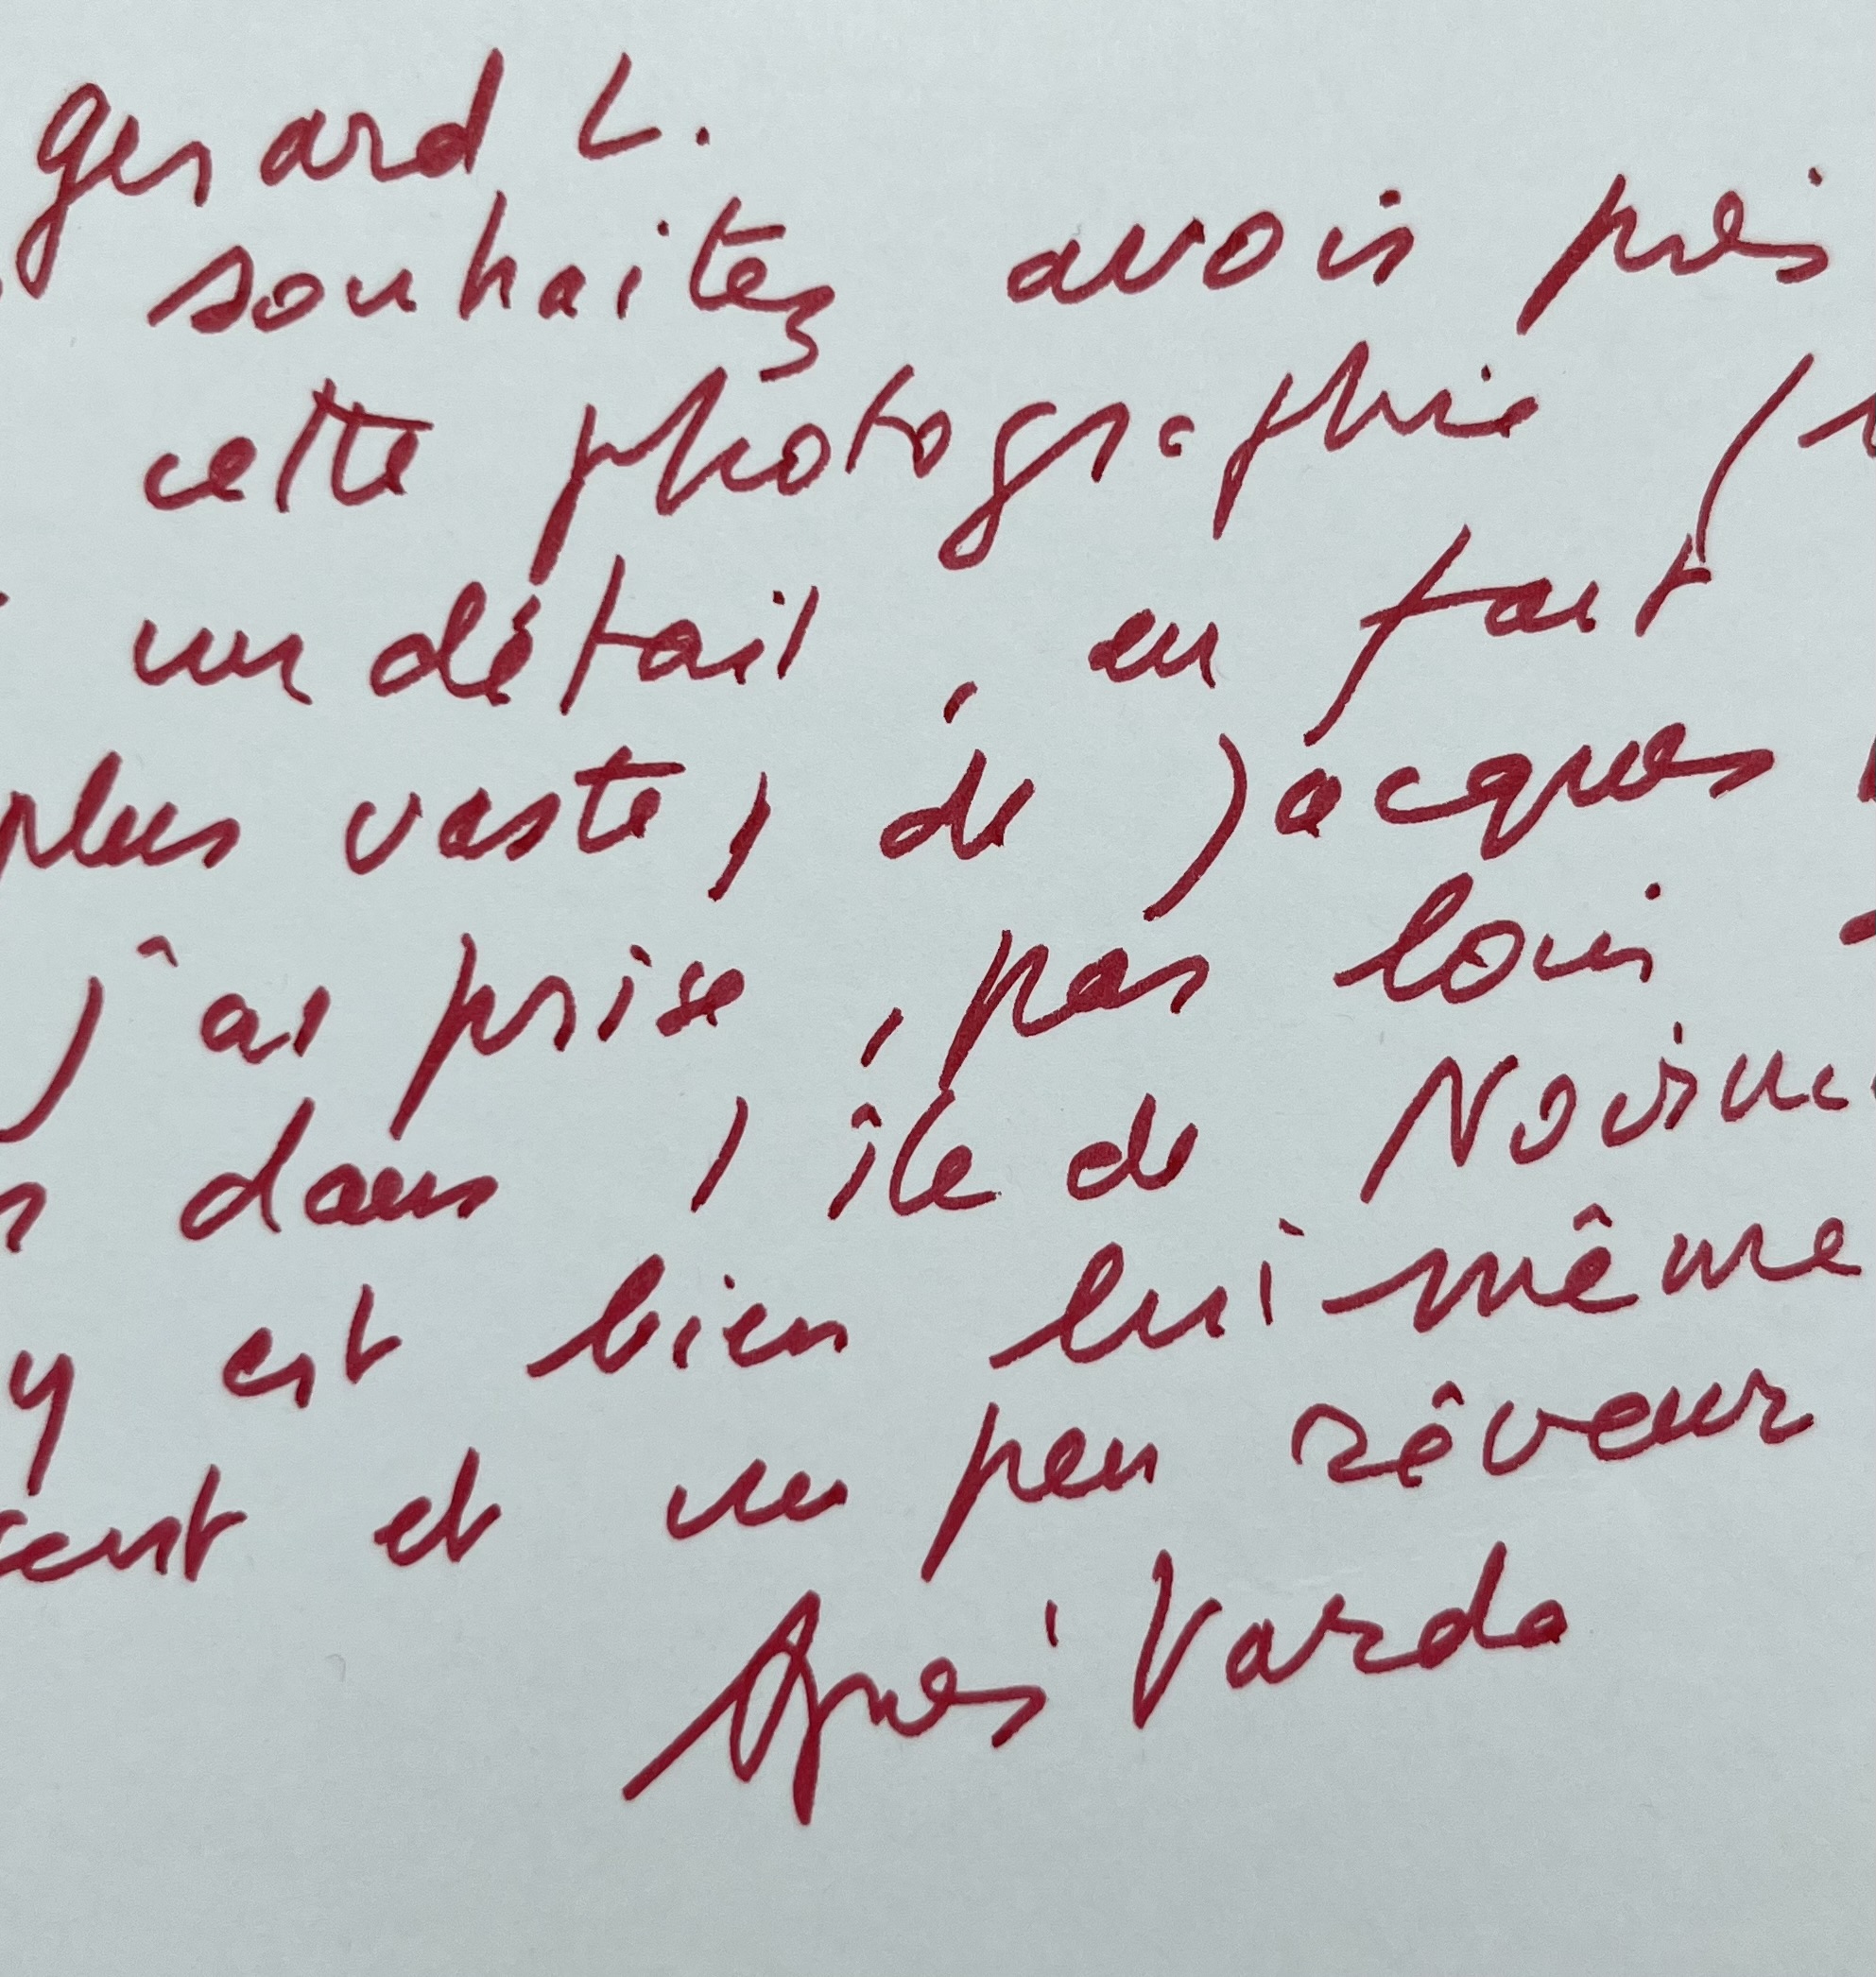 Gerard L.
souhaitez avoir près
cette photographie (
un détail, en fait
plus vaste, de Jacques
j'ai prise, pas loin
dans l'île de Noirm
y est bien lui-même
et un peu rêveur
Agnès Varda